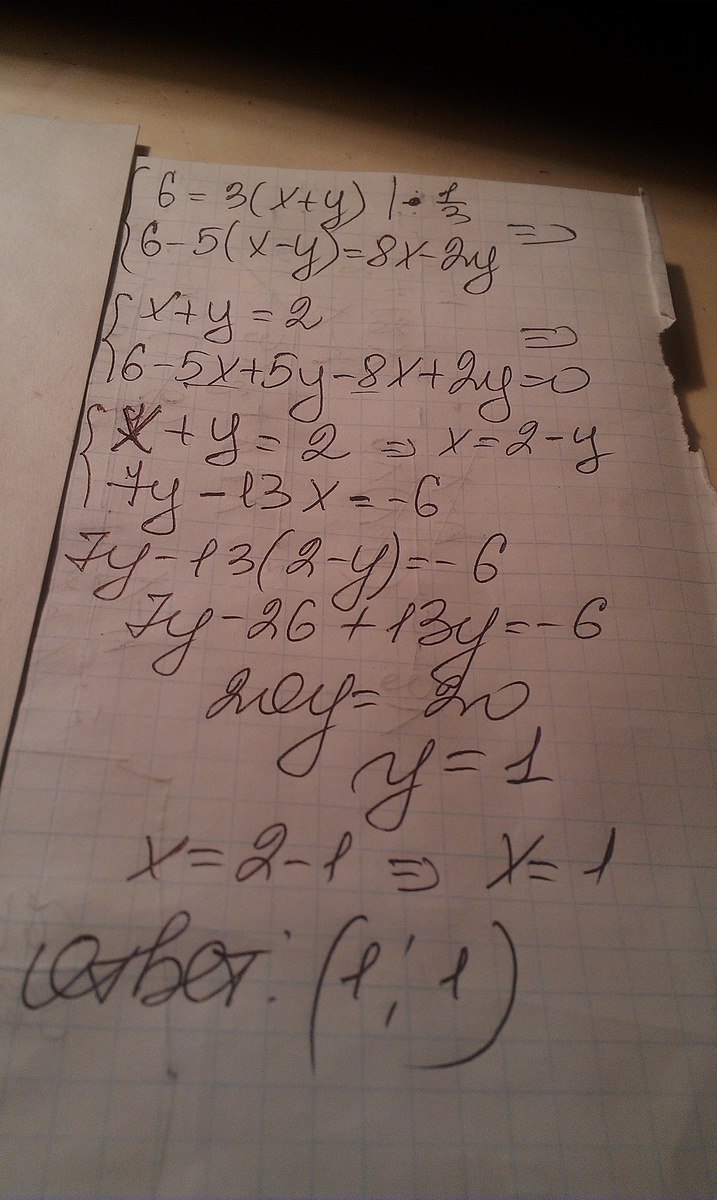 { 6 = 3(x+y) | · 1/3
{ 6-5(x-y)=8x-2y =>
{ x+y=2
{ 6-5x+5y-8x+2y=0 =>
{ x+y=2 => x=2-y
{ 7y-13x=-6
7y-13(2-y)=-6
7y-26+13y=-6
20y=20
y=1
x=2-1 => x=1
Ответ: (1; 1)